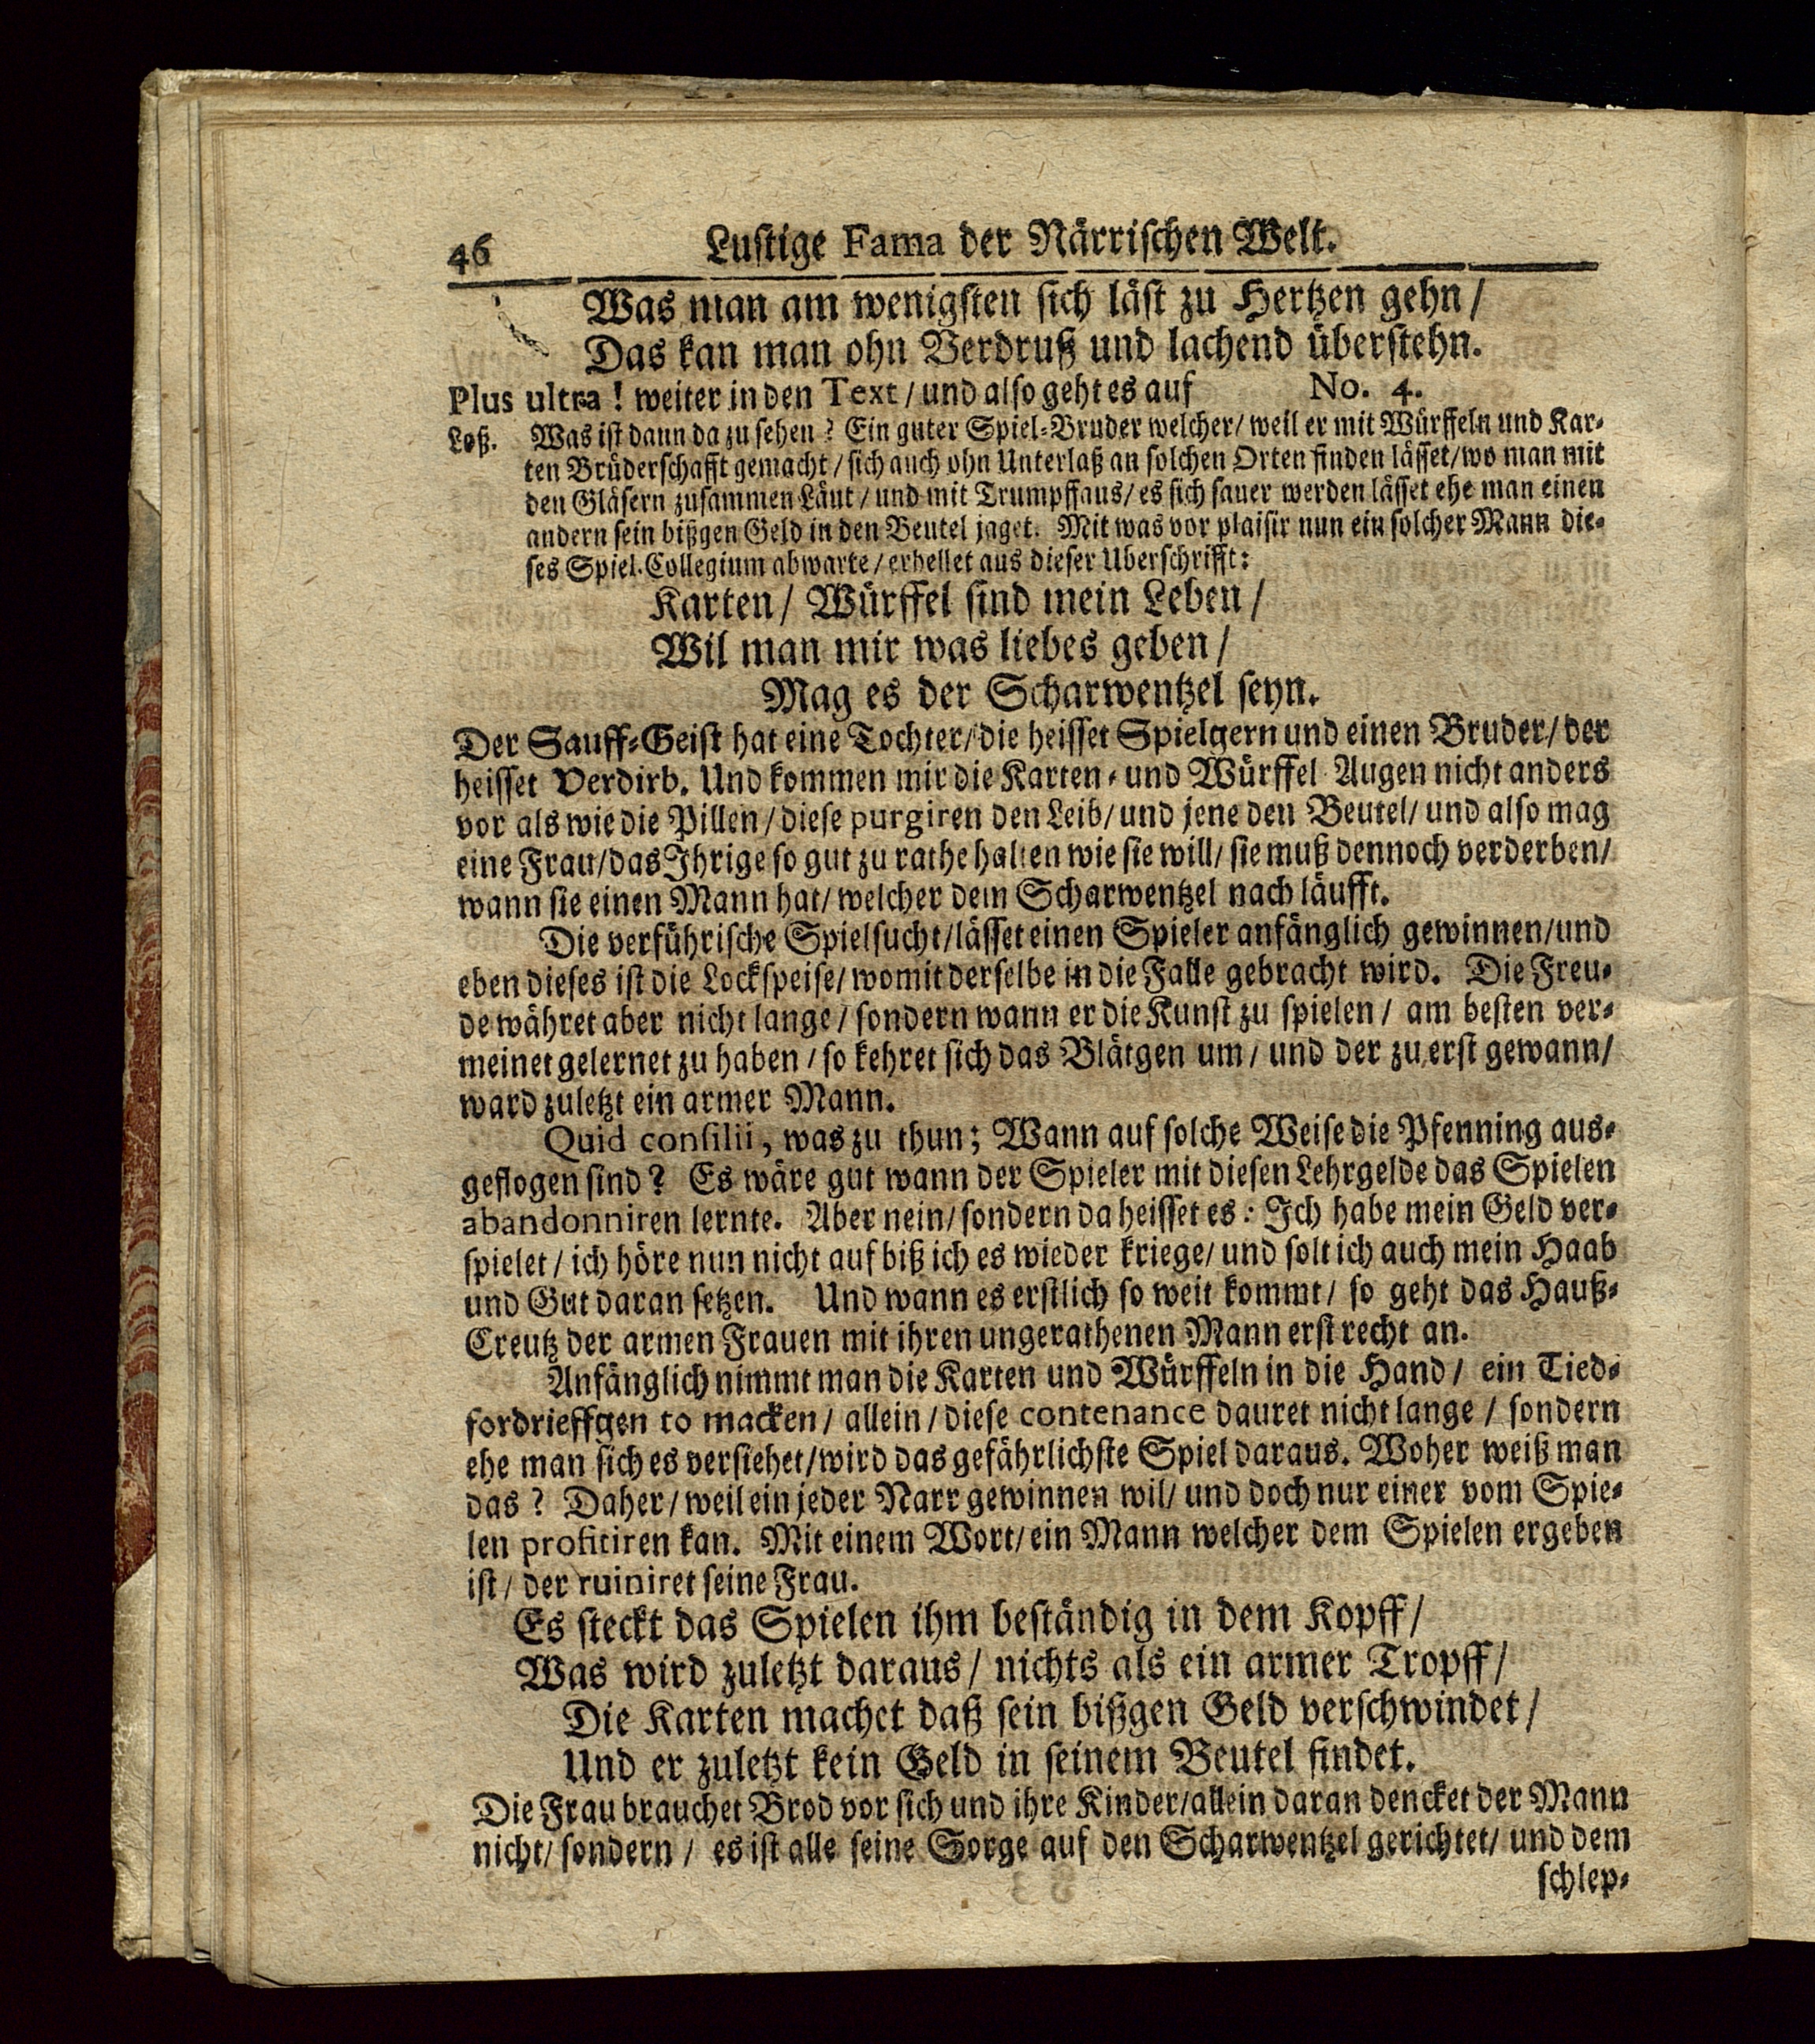 46 Lustige Fama der Närrischen Welt.
Was man am wenigsten sich läst zu Hertzen gehn/
Das kan man ohn Verdruß und lachend überstehn.
Plus ultra! weiter in den Text/ und also geht es auf No. 4.
Loß. Was ist dann da zu sehen? Ein guter Spiel-Bruder welcher/ weil er mit Würffeln und Kar-
ten Brüderschafft gemacht/ sich auch ohn Unterlaß an solchen Orten finden lässet/ wo man mit
den Gläsern zusammen Läut/ und mit Trumpff aus/ es sich sauer werden lässet ehe man einen
andern sein bißgen Geld in den Beutel jaget. Mit was vor plaisir nun ein solcher Mann die-
ses Spiel-Collegium abwarte/ erhellet aus dieser Uberschrifft:
Karten/ Würffel sind mein Leben/
Wil man mir was liebes geben/
Mag es der Scharwentzel seyn.
Der Sauff-Geist hat eine Tochter/ die heisset Spielgern und einen Bruder/ der
heisset Verdirb. Und kommen mir die Karten- und Würffel Augen nicht anders
vor als wie die Pillen/ diese purgiren den Leib/ und jene den Beutel/ und also mag
eine Frau/ das Ihrige so gut zu rathe halten wie sie will/ sie muß dennoch verderben/
wann sie einen Mann hat/ welcher dem Scharwentzel nach läufft.
Die verführische Spielsucht/ lässet einen Spieler anfänglich gewinnen/ und
eben dieses ist die Lockspeise/ womit derselbe in die Falle gebracht wird. Die Freu-
de währet aber nicht lange/ sondern wann er die Kunst zu spielen/ am besten ver-
meinet gelernet zu haben/ so kehret sich das Blätgen um/ und der zu erst gewann/
ward zuletzt ein armer Mann.
Quid consilii, was zu thun; Wann auf solche Weise die Pfenning aus-
geflogen sind? Es wäre gut wann der Spieler mit diesen Lehrgelde das Spielen
abandonniren lernte. Aber nein/ sondern da heisset es: Ich habe mein Geld ver-
spielet/ ich höre nun nicht auf biß ich es wieder kriege/ und solt ich auch mein Haab
und Gut daran setzen. Und wann es erstlich so weit kommt/ so geht das Hauß-
Creutz der armen Frauen mit ihren ungerathenen Mann erst recht an.
Anfänglich nimmt man die Karten und Würffeln in die Hand/ ein Tied-
fordrieffgen to macken/ allein/ diese contenance dauret nicht lange/ sondern
ehe man sich es versiehet/ wird das gefährlichste Spiel daraus. Woher weiß man
das? Daher/ weil ein jeder Narr gewinnen wil/ und doch nur einer vom Spie-
len profitiren kan. Mit einem Wort/ ein Mann welcher dem Spielen ergeben
ist/ der ruiniret seine Frau.
Es steckt das Spielen ihm beständig in dem Kopff/
Was wird zuletzt daraus/ nichts als ein armer Tropff/
Die Karten machet daß sein bißgen Geld verschwindet/
Und er zuletzt kein Geld in seinem Beutel findet.
Die Frau brauchet Brod vor sich und ihre Kinder/ allein daran dencket der Mann
nicht/ sondern/ es ist alle seine Sorge auf den Scharwentzel gerichtet/ und dem
schlep-